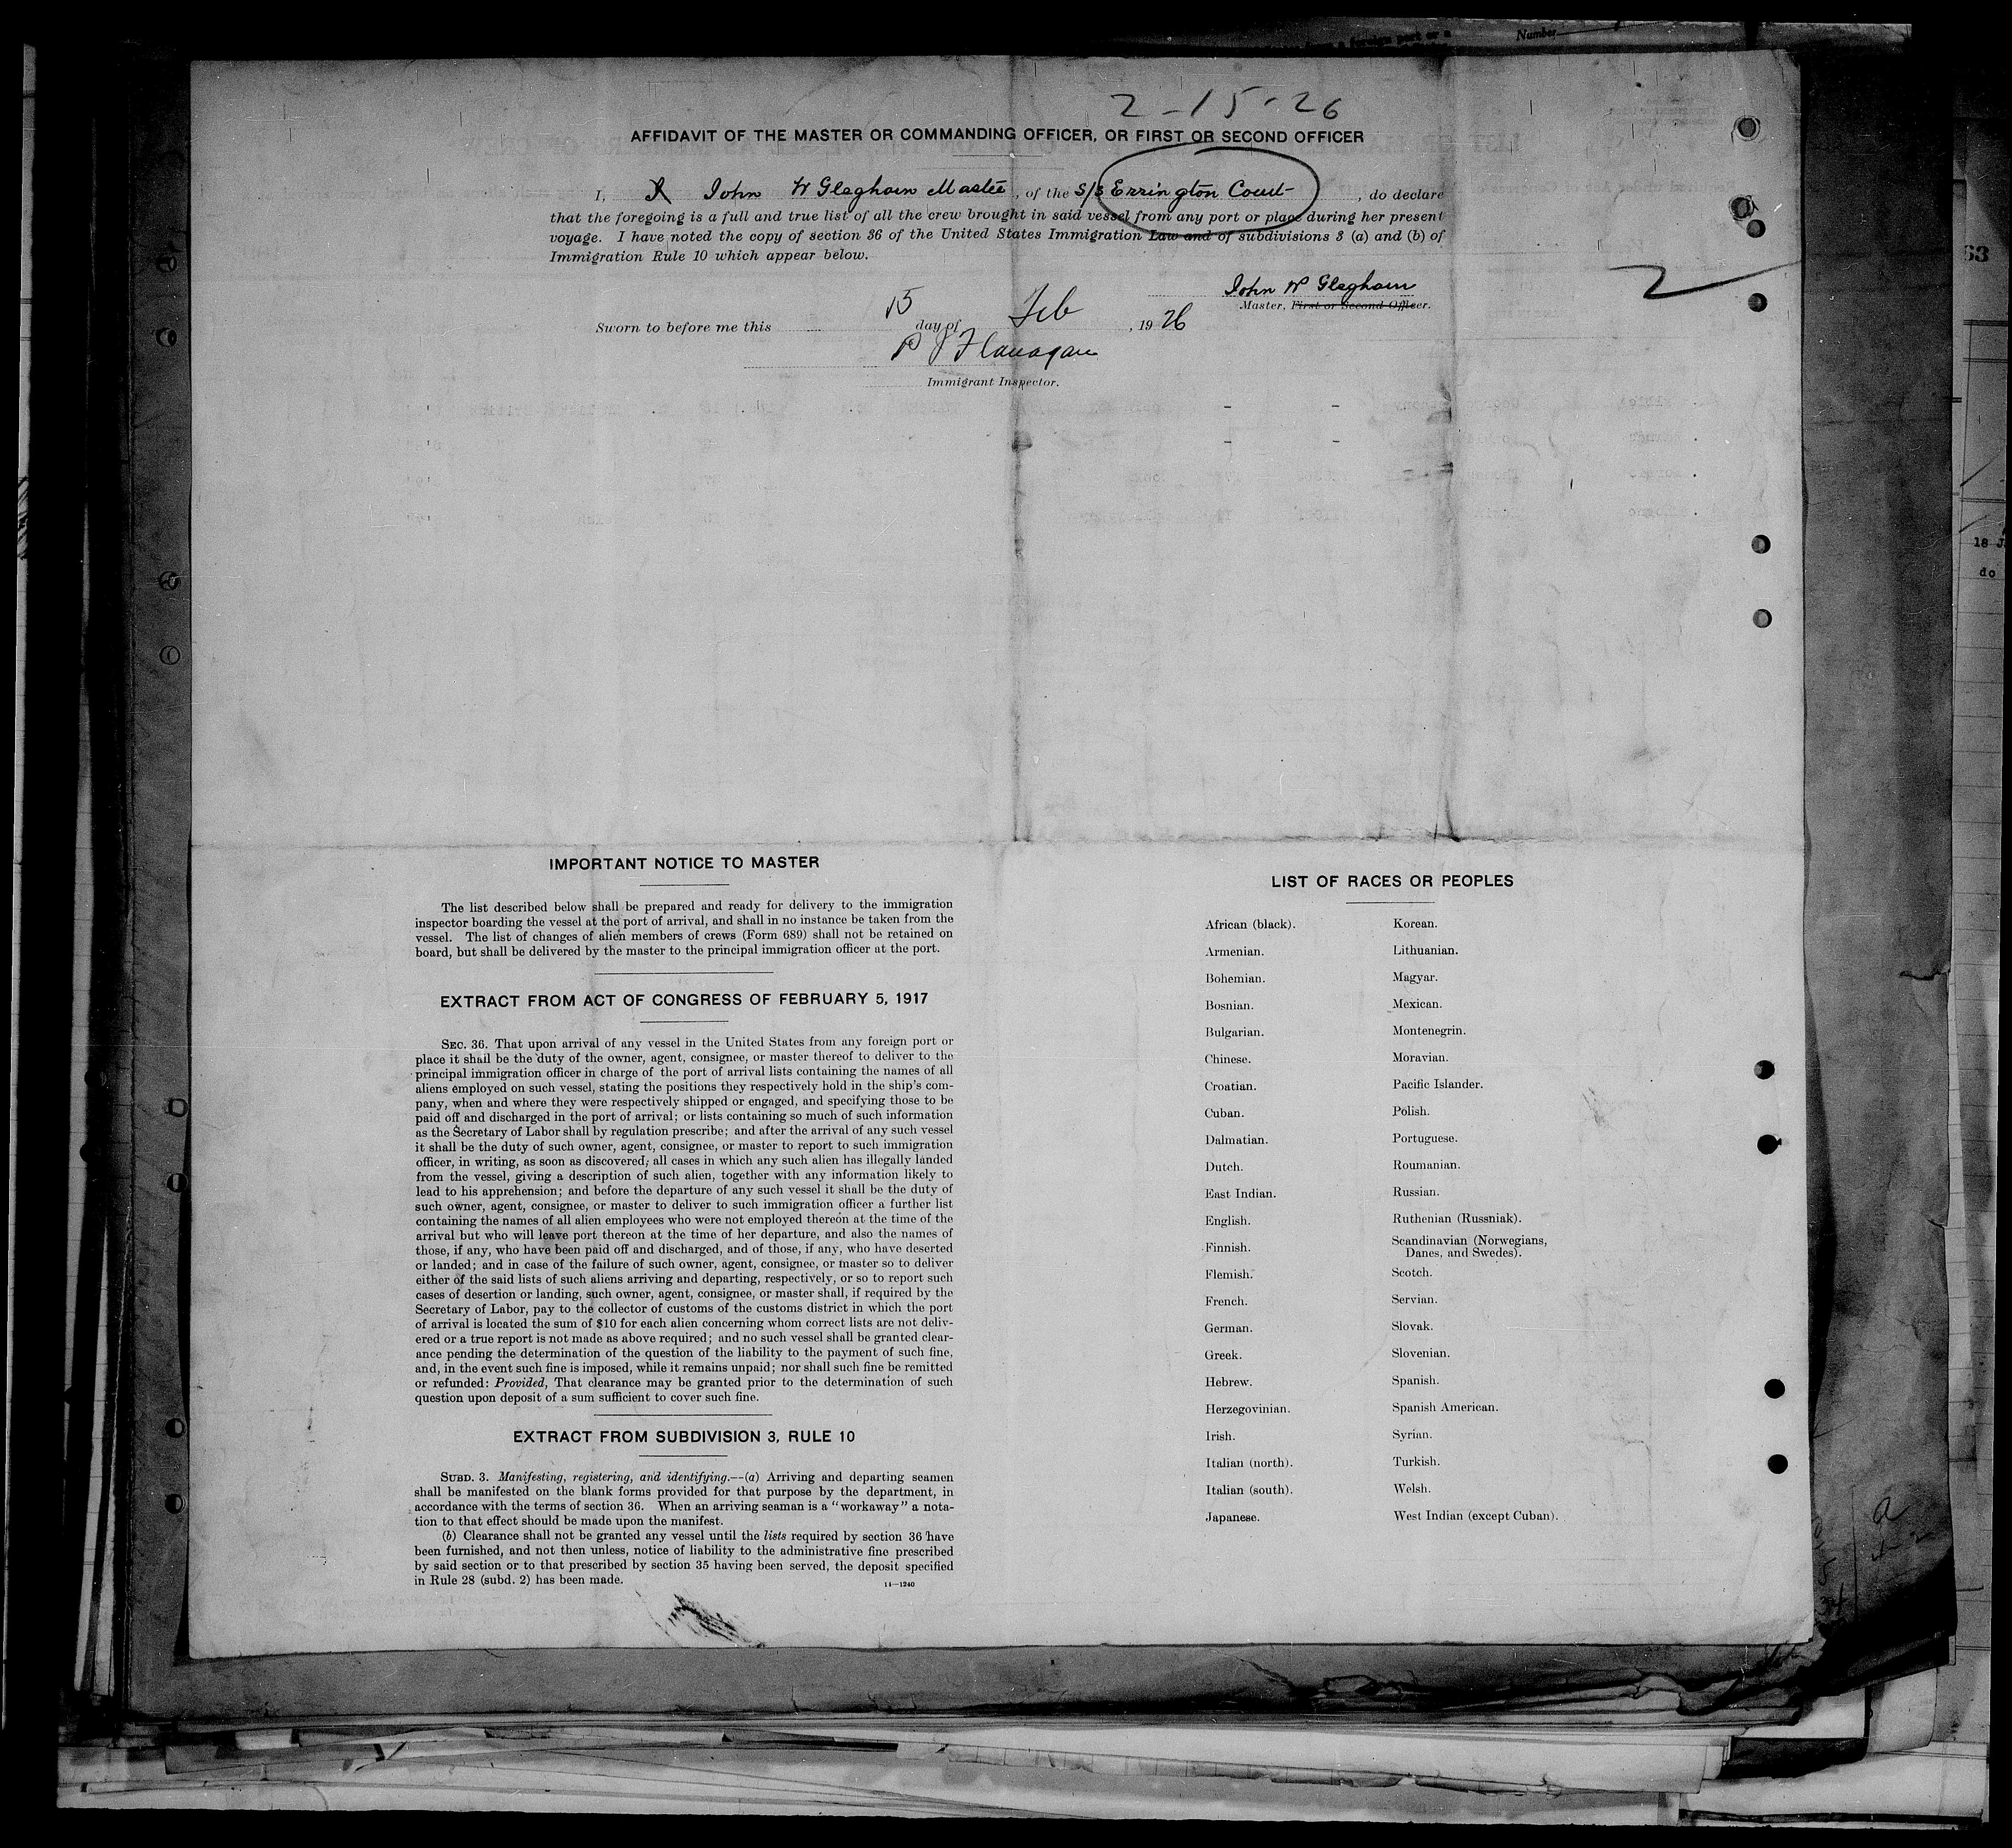 Number
2-15-26
AFFIDAVIT OF THE MASTER OR COMMANDING OFFICER, OR FIRST OR SECOND OFFICER
I, John W Gleghorn Master, of the S/S Errington Court, do declare
that the foregoing is a full and true list of all the crew brought in said vessel from any port or place during her present
voyage. I have noted the copy of section 36 of the United States Immigration Law and of subdivisions 3 (a) and (b) of
Immigration Rule 10 which appear below.
John W Gleghorn
Master, First or Second Officer.
Sworn to before me this 15 day of Feb, 1926
P J Flanagan
Immigrant Inspector.
IMPORTANT NOTICE TO MASTER
The list described below shall be prepared and ready for delivery to the immigration
inspector boarding the vessel at the port of arrival, and shall in no instance be taken from the
vessel. The list of changes of alien members of crews (Form 689) shall not be retained on
board, but shall be delivered by the master to the principal immigration officer at the port.
EXTRACT FROM ACT OF CONGRESS OF FEBRUARY 5, 1917
SEC. 36. That upon arrival of any vessel in the United States from any foreign port or
place it shall be the duty of the owner, agent, consignee, or master thereof to deliver to the
principal immigration officer in charge of the port of arrival lists containing the names of all
aliens employed on such vessel, stating the positions they respectively hold in the ship's com-
pany, when and where they were respectively shipped or engaged, and specifying those to be
paid off and discharged in the port of arrival; or lists containing so much of such information
as the Secretary of Labor shall by regulation prescribe; and after the arrival of any such vessel
it shall be the duty of such owner, agent, consignee, or master to report to such immigration
officer, in writing, as soon as discovered, all cases in which any such alien has illegally landed
from the vessel, giving a description of such alien, together with any information likely to
lead to his apprehension; and before the departure of any such vessel it shall be the duty of
such owner, agent, consignee, or master to deliver to such immigration officer a further list
containing the names of all alien employees who were not employed thereon at the time of the
arrival but who will leave port thereon at the time of her departure, and also the names of
those, if any, who have been paid off and discharged, and of those, if any, who have deserted
or landed; and in case of the failure of such owner, agent, consignee, or master so to deliver
either of the said lists of such aliens arriving and departing, respectively, or so to report such
cases of desertion or landing, such owner, agent, consignee, or master shall, if required by the
Secretary of Labor, pay to the collector of customs of the customs district in which the port
of arrival is located the sum of $10 for each alien concerning whom correct lists are not deliv-
ered or a true report is not made as above required; and no such vessel shall be granted clear-
ance pending the determination of the question of the liability to the payment of such fine,
and, in the event such fine is imposed, while it remains unpaid; nor shall such fine be remitted
or refunded: Provided, That clearance may be granted prior to the determination of such
question upon deposit of a sum sufficient to cover such fine.
EXTRACT FROM SUBDIVISION 3, RULE 10
SUBD. 3. Manifesting, registering, and identifying.—(a) Arriving and departing seamen
shall be manifested on the blank forms provided for that purpose by the department, in
accordance with the terms of section 36. When an arriving seaman is a "workaway" a nota-
tion to that effect should be made upon the manifest.
(b) Clearance shall not be granted any vessel until the lists required by section 36 have
been furnished, and not then unless, notice of liability to the administrative fine prescribed
by said section or to that prescribed by section 35 having been served, the deposit specified
in Rule 28 (subd. 2) has been made.
11—1240
LIST OF RACES OR PEOPLES
African (black).
Armenian.
Bohemian.
Bosnian.
Bulgarian.
Chinese.
Croatian.
Cuban.
Dalmatian.
Dutch.
East Indian.
English.
Finnish.
Flemish.
French.
German.
Greek.
Hebrew.
Herzegovinian.
Irish.
Italian (north).
Italian (south).
Japanese.
Korean.
Lithuanian.
Magyar.
Mexican.
Montenegrin.
Moravian.
Pacific Islander.
Polish.
Portuguese.
Roumanian.
Russian.
Ruthenian (Russniak).
Scandinavian (Norwegians,
Danes, and Swedes).
Scotch.
Servian.
Slovak.
Slovenian.
Spanish.
Spanish American.
Syrian.
Turkish.
Welsh.
West Indian (except Cuban).